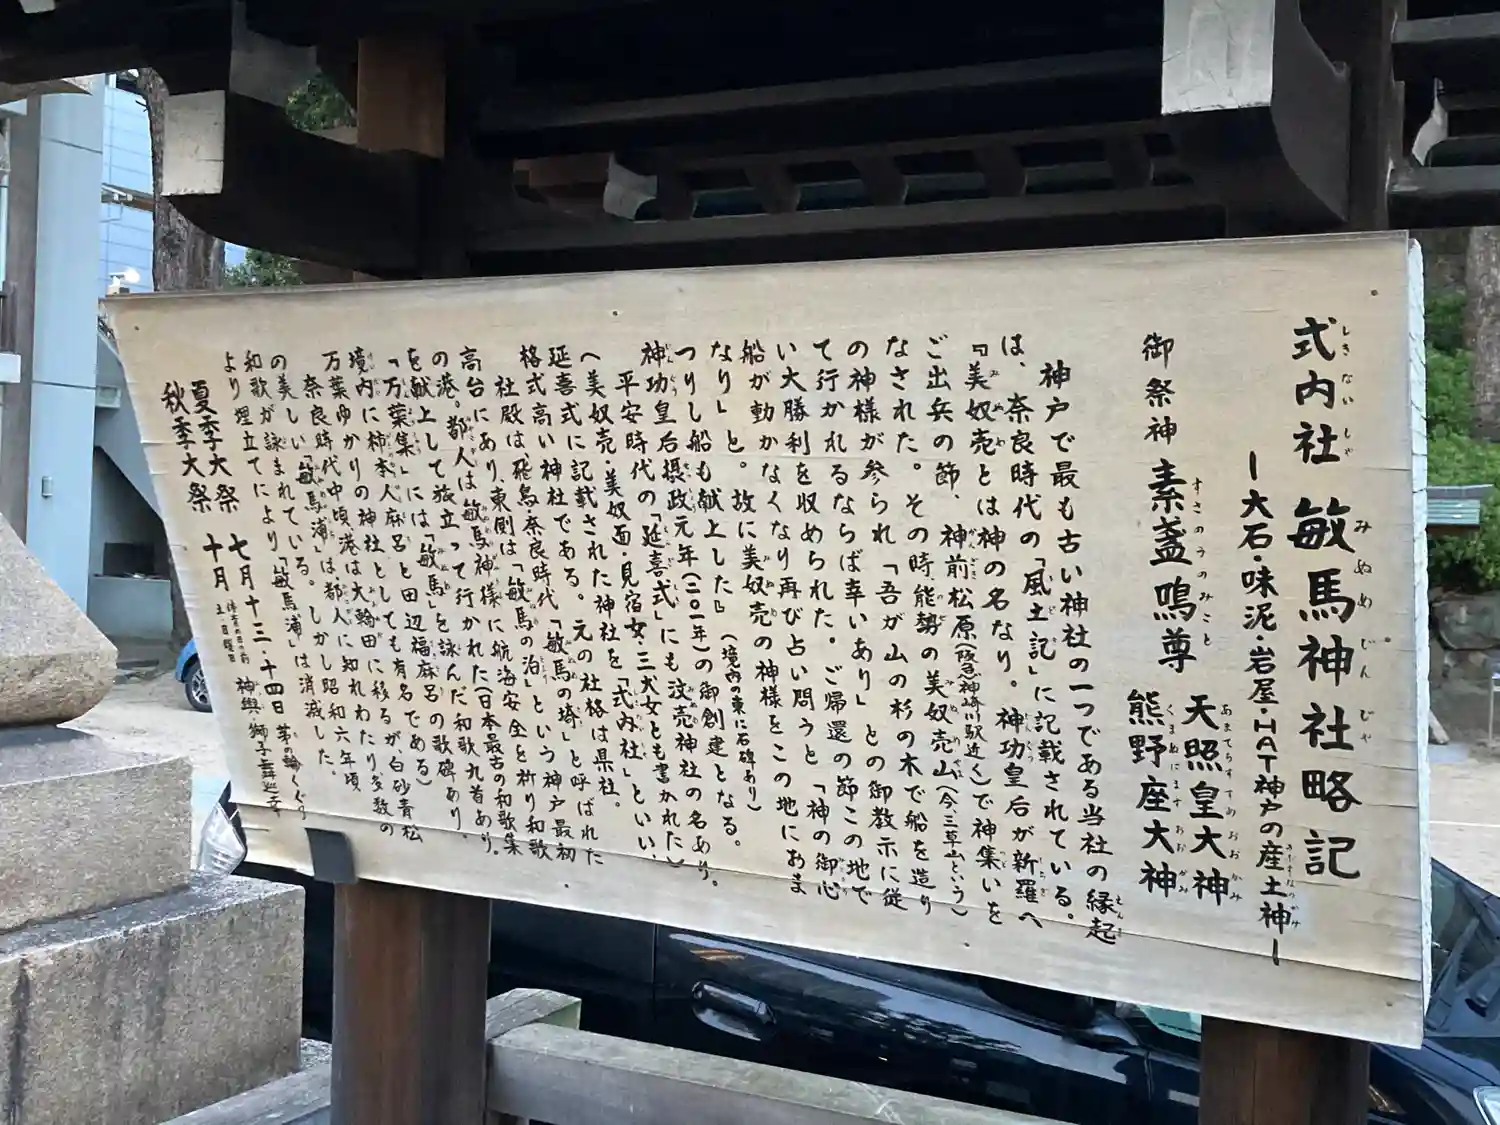 式内社 敏馬神社略記
ー大石・味泥・岩屋・HAT神戸の産土神ー
御祭神 素盞鳴尊 天照皇大神
熊野座大神
神戸で最も古い神社の一つである当社の縁起
は、奈良時代の「風土記」に記載されている。
『美奴売とは神の名なり。神功皇后が新羅へ
ご出兵の節、神前松原(阪急神崎川駅近く)で神集いを
なされた。その時、能勢の美奴売山(今、三草山という)
の神様が参られ「吾が山の杉の木で船を造り
て行かれるならば幸いあり」との御教示に従
い大勝利を収められた。ご帰還の節この地で
船が動かなくなり再び占い問うと「神の御心
なり」と。故に美奴売の神様をこの地におま
つりし船も献上した』(境内の東に石碑あり)
神功皇后摂政元年(二〇一年)の御創建となる。
平安時代の「延喜式」にも汶売神社の名あり。
(美奴売・美奴面・見宿女・三犬女とも書かれた)
延喜式に記載された神社を「式内社」といい、
格式高い神社である。元の社格は県社。
社殿は、飛鳥・奈良時代「敏馬の埼」と呼ばれた
高台にあり、東側は「敏馬の泊」という神戸最初
の港。都人は敏馬神様に航海安全を祈り和歌
を献上して旅立って行かれた(日本最古の和歌集
「万葉集」には「敏馬」を詠んだ和歌九首あり。
境内に柿本人麻呂と田辺福麻呂の歌碑あり。
万葉ゆかりの神社としても有名である)
奈良時代中頃港は大輪田に移るが、白砂青松
の美しい「敏馬浦」は都人に知れわたり多数の
和歌が詠まれている。しかし昭和六年頃
より埋立てにより「敏馬浦」は消滅した。
夏季大祭 七月十三・十四日 茅の輪くぐり
秋季大祭 十月 神輿・獅子舞巡幸